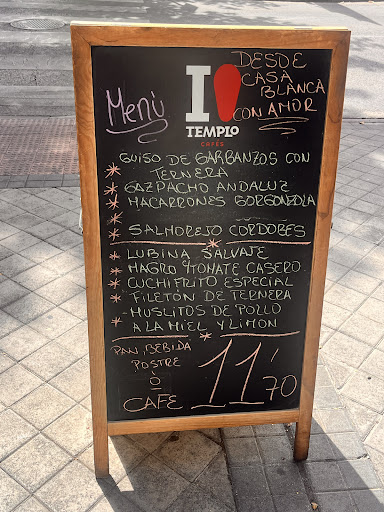 Menú
I
TEMPLO
CAFÉS
DESDE
CASA
BLANCA
CON AMOR
GUISO DE GARBANZOS CON
TERNERA
* GAZPACHO ANDALUZ
* MACARRONES GORGONZOLA
*
* SALMOREJO CORDOBES
* LUBINA SALVAJE
* MAGRO Y TOMATE CASERO
* CUCHIFRITO ESPECIAL
* FILETÓN DE TERNERA
- MUSLITOS DE POLLO
* A LA MIEL Y LIMON
PAN, BEBIDA
POSTRE
Ó
CAFE 11'70